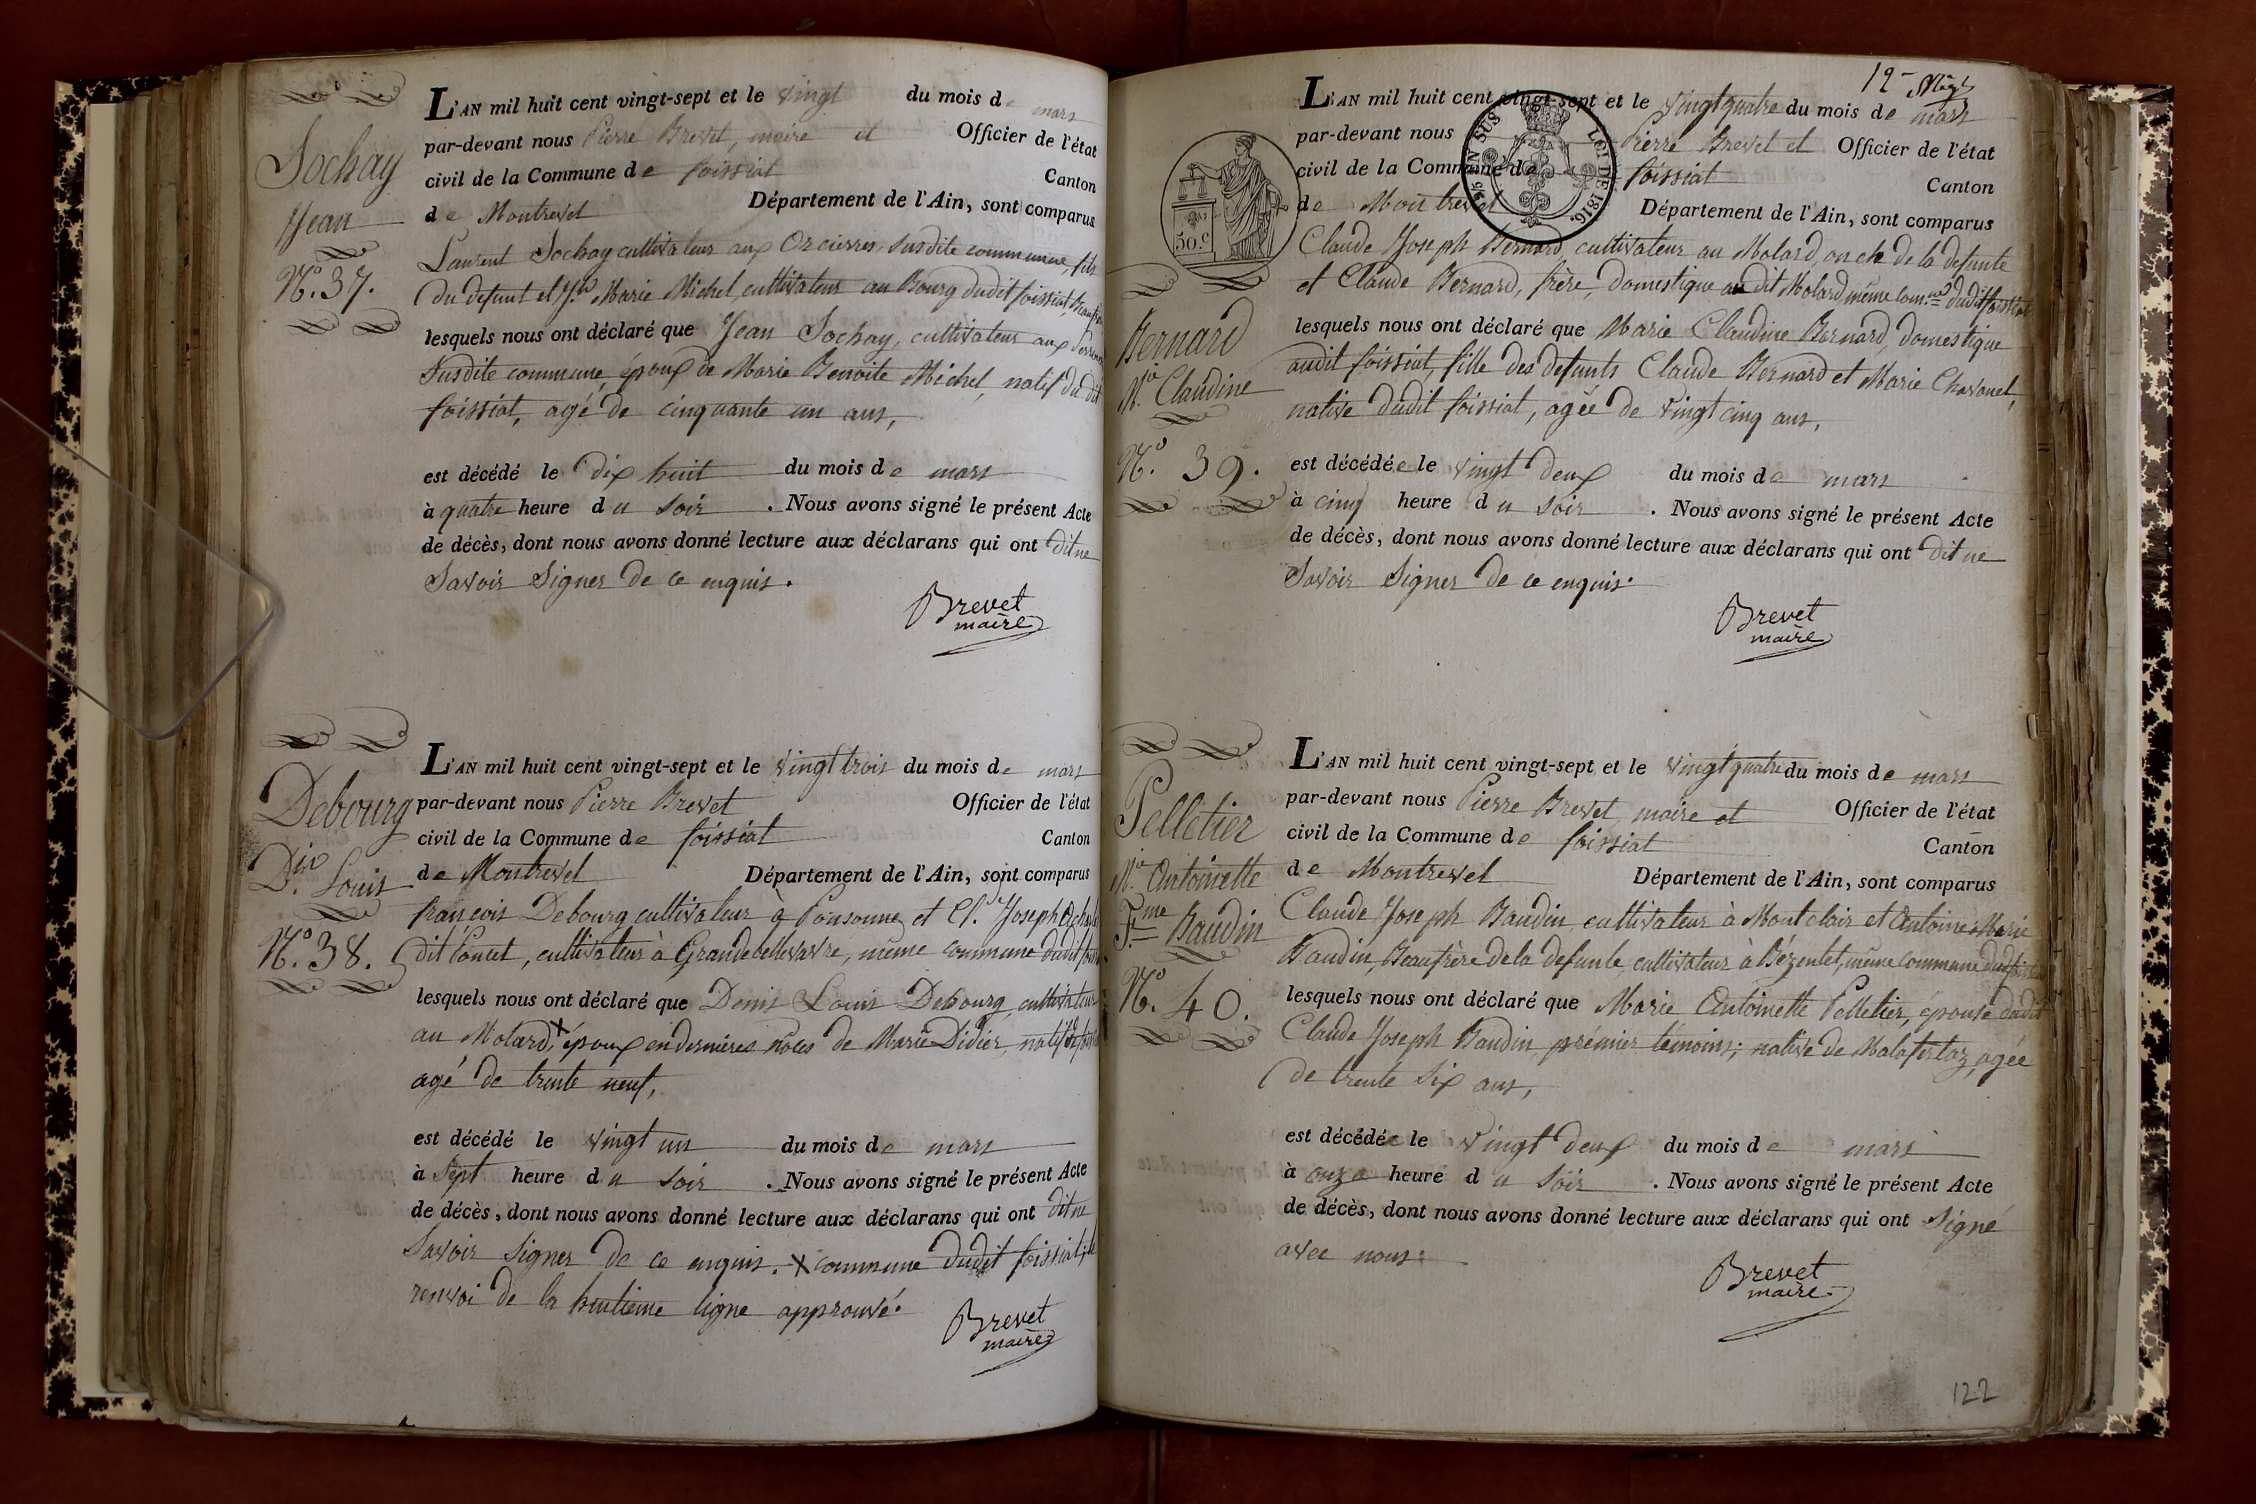 Sochay
Jean
N.º 37.
L'AN mil huit cent vingt-sept et le vingt du mois de mars
par-devant nous Pierre Brevet, maire et Officier de l'état
civil de la Commune de foissiat Canton
de Montrevel Département de l'Ain, sont comparus
Laurent Sochay cultivateur aux Orcières susdite commune, fils
du defunt et Jh Marie Michel, cultivateur au Bourg dudit foissiat,
lesquels nous ont déclaré que Jean Sochay, cultivateur aux
susdite commune, époux de Marie Benoite Michel, natif du dit
foissiat, agé de cinquante un ans,
est décédé le dix huit du mois de mars
à quatre heure du soir . Nous avons signé le présent Acte
de décès, dont nous avons donné lecture aux déclarans qui ont dit ne
savoir signer de ce enquis.
Brevet
maire
Debourg
Dis Louis
N.º 38.
L'AN mil huit cent vingt-sept et le vingt trois du mois de mars
par-devant nous Pierre Brevet Officier de l'état
civil de la Commune de foissiat Canton
de Montrevel Département de l'Ain, sont comparus
françois Debourg cultivateur à Ponsonne, et Cl. Joseph
dit Poncet, cultivateur à Grandecellevavre, même commune dudit
lesquels nous ont déclaré que Denis Louis Debourg, cultivateur
au Molard, X époux en dernières nôces de Marie Didier, natif
agé de trente neuf,
est décédé le vingt un du mois de mars
à sept heure du soir . Nous avons signé le présent Acte
de décès, dont nous avons donné lecture aux déclarans qui ont dit ne
savoir signer de ce enquis. X commune dudit foissiat, le
renvoi de la huitieme ligne approuvé.
Brevet
maire
12
50.c
EN SUS
LOI DE 1816.
Bernard
M.ie Claudine
N.º 39.
L'AN mil huit cent vingt-sept et le vingt quatre du mois de mars
par-devant nous Pierre Brevet et Officier de l'état
civil de la Commune de foissiat Canton
de Montrevel Département de l'Ain, sont comparus
Claude Joseph Bernard, cultivateur au Molard, oncle de la defunte
et Claude Bernard, frère, domestique audit Molard même com.ne dudit foissiat
lesquels nous ont déclaré que Marie Claudine Bernard, domestique
audit foissiat, fille des defunts Claude Bernard et Marie Chavanel,
native dudit foissiat, agée de vingt cinq ans,
est décédée le vingt deux du mois de mars
à cinq heure du soir . Nous avons signé le présent Acte
de décès, dont nous avons donné lecture aux déclarans qui ont dit ne
savoir signer de ce enquis.
Brevet
maire
Pelletier
M.ie Antoinette
F.me Baudin
N.º 40.
L'AN mil huit cent vingt-sept et le vingt quatre du mois de mars
par-devant nous Pierre Brevet, maire et Officier de l'état
civil de la Commune de foissiat Canton
de Montrevel Département de l'Ain, sont comparus
Claude Joseph Baudin, cultivateur à Montclair et Antoine Marie
Baudin, Beaufrère de la defunte, cultivateur à Bézentet, même commune
lesquels nous ont déclaré que Marie Antoinette Pelletier, épouse dudit
Claude Joseph Baudin, prémier témoins; native de Malafretaz, agée
de trente six ans,
est décédée le vingt deux du mois de mars
à onze heure du soir . Nous avons signé le présent Acte
de décès, dont nous avons donné lecture aux déclarans qui ont signé
avec nous.
Brevet
maire
122